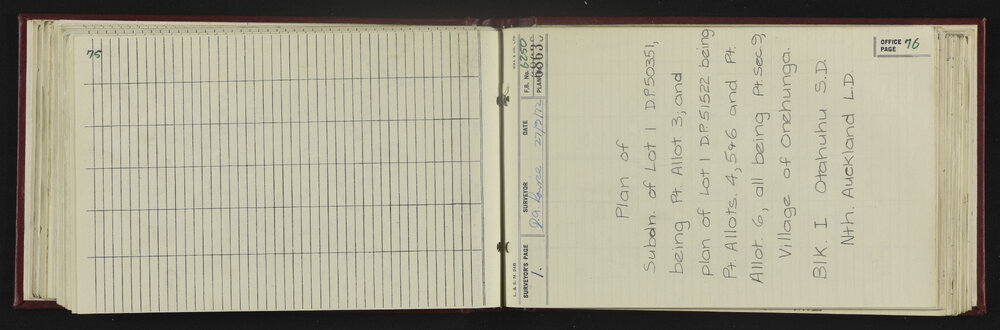 75
OFFICE PAGE 76
L. & S. N. 24B
SURVEYOR'S PAGE 1.
SURVEYOR
DATE 22/2/72
F.B. No. 6250
PLAN 68630
Plan of
Subdn. of Lot 1 DP.50351,
being Pt Allot 3, and
plan of Lot 1 DP.51522 being
Pt. Allots. 4, 5 & 6 and Pt.
Allot. 6, all being Pt sec 9,
Village of Onehunga.
Blk. I Otahuhu S.D.
Nth. Auckland L.D.